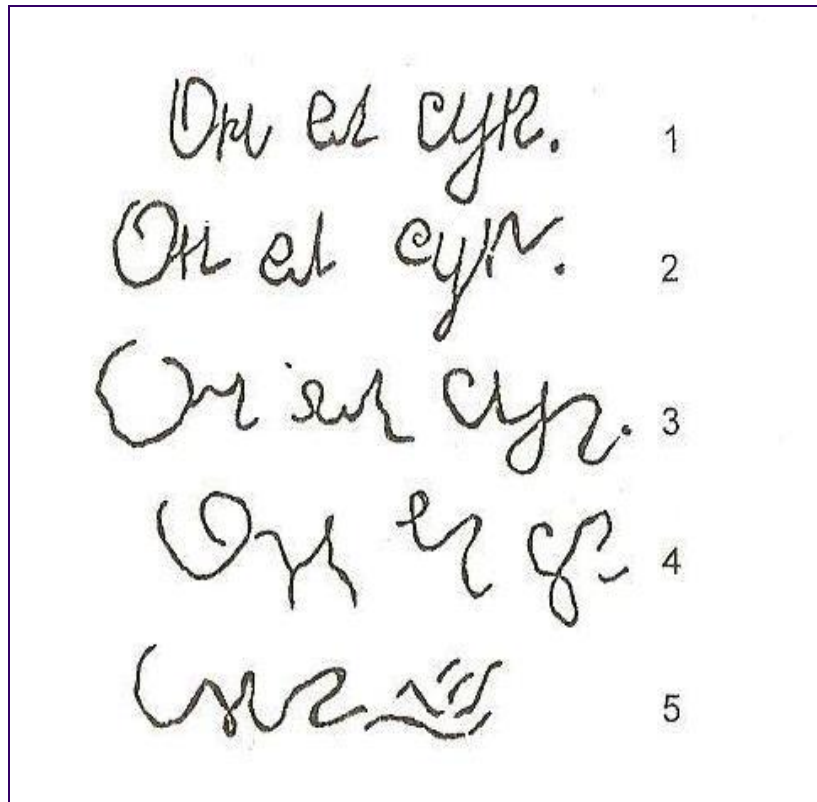 Он ел суп. 1
Он ел суп. 2
Он ел суп. 3
Он ел 4
5